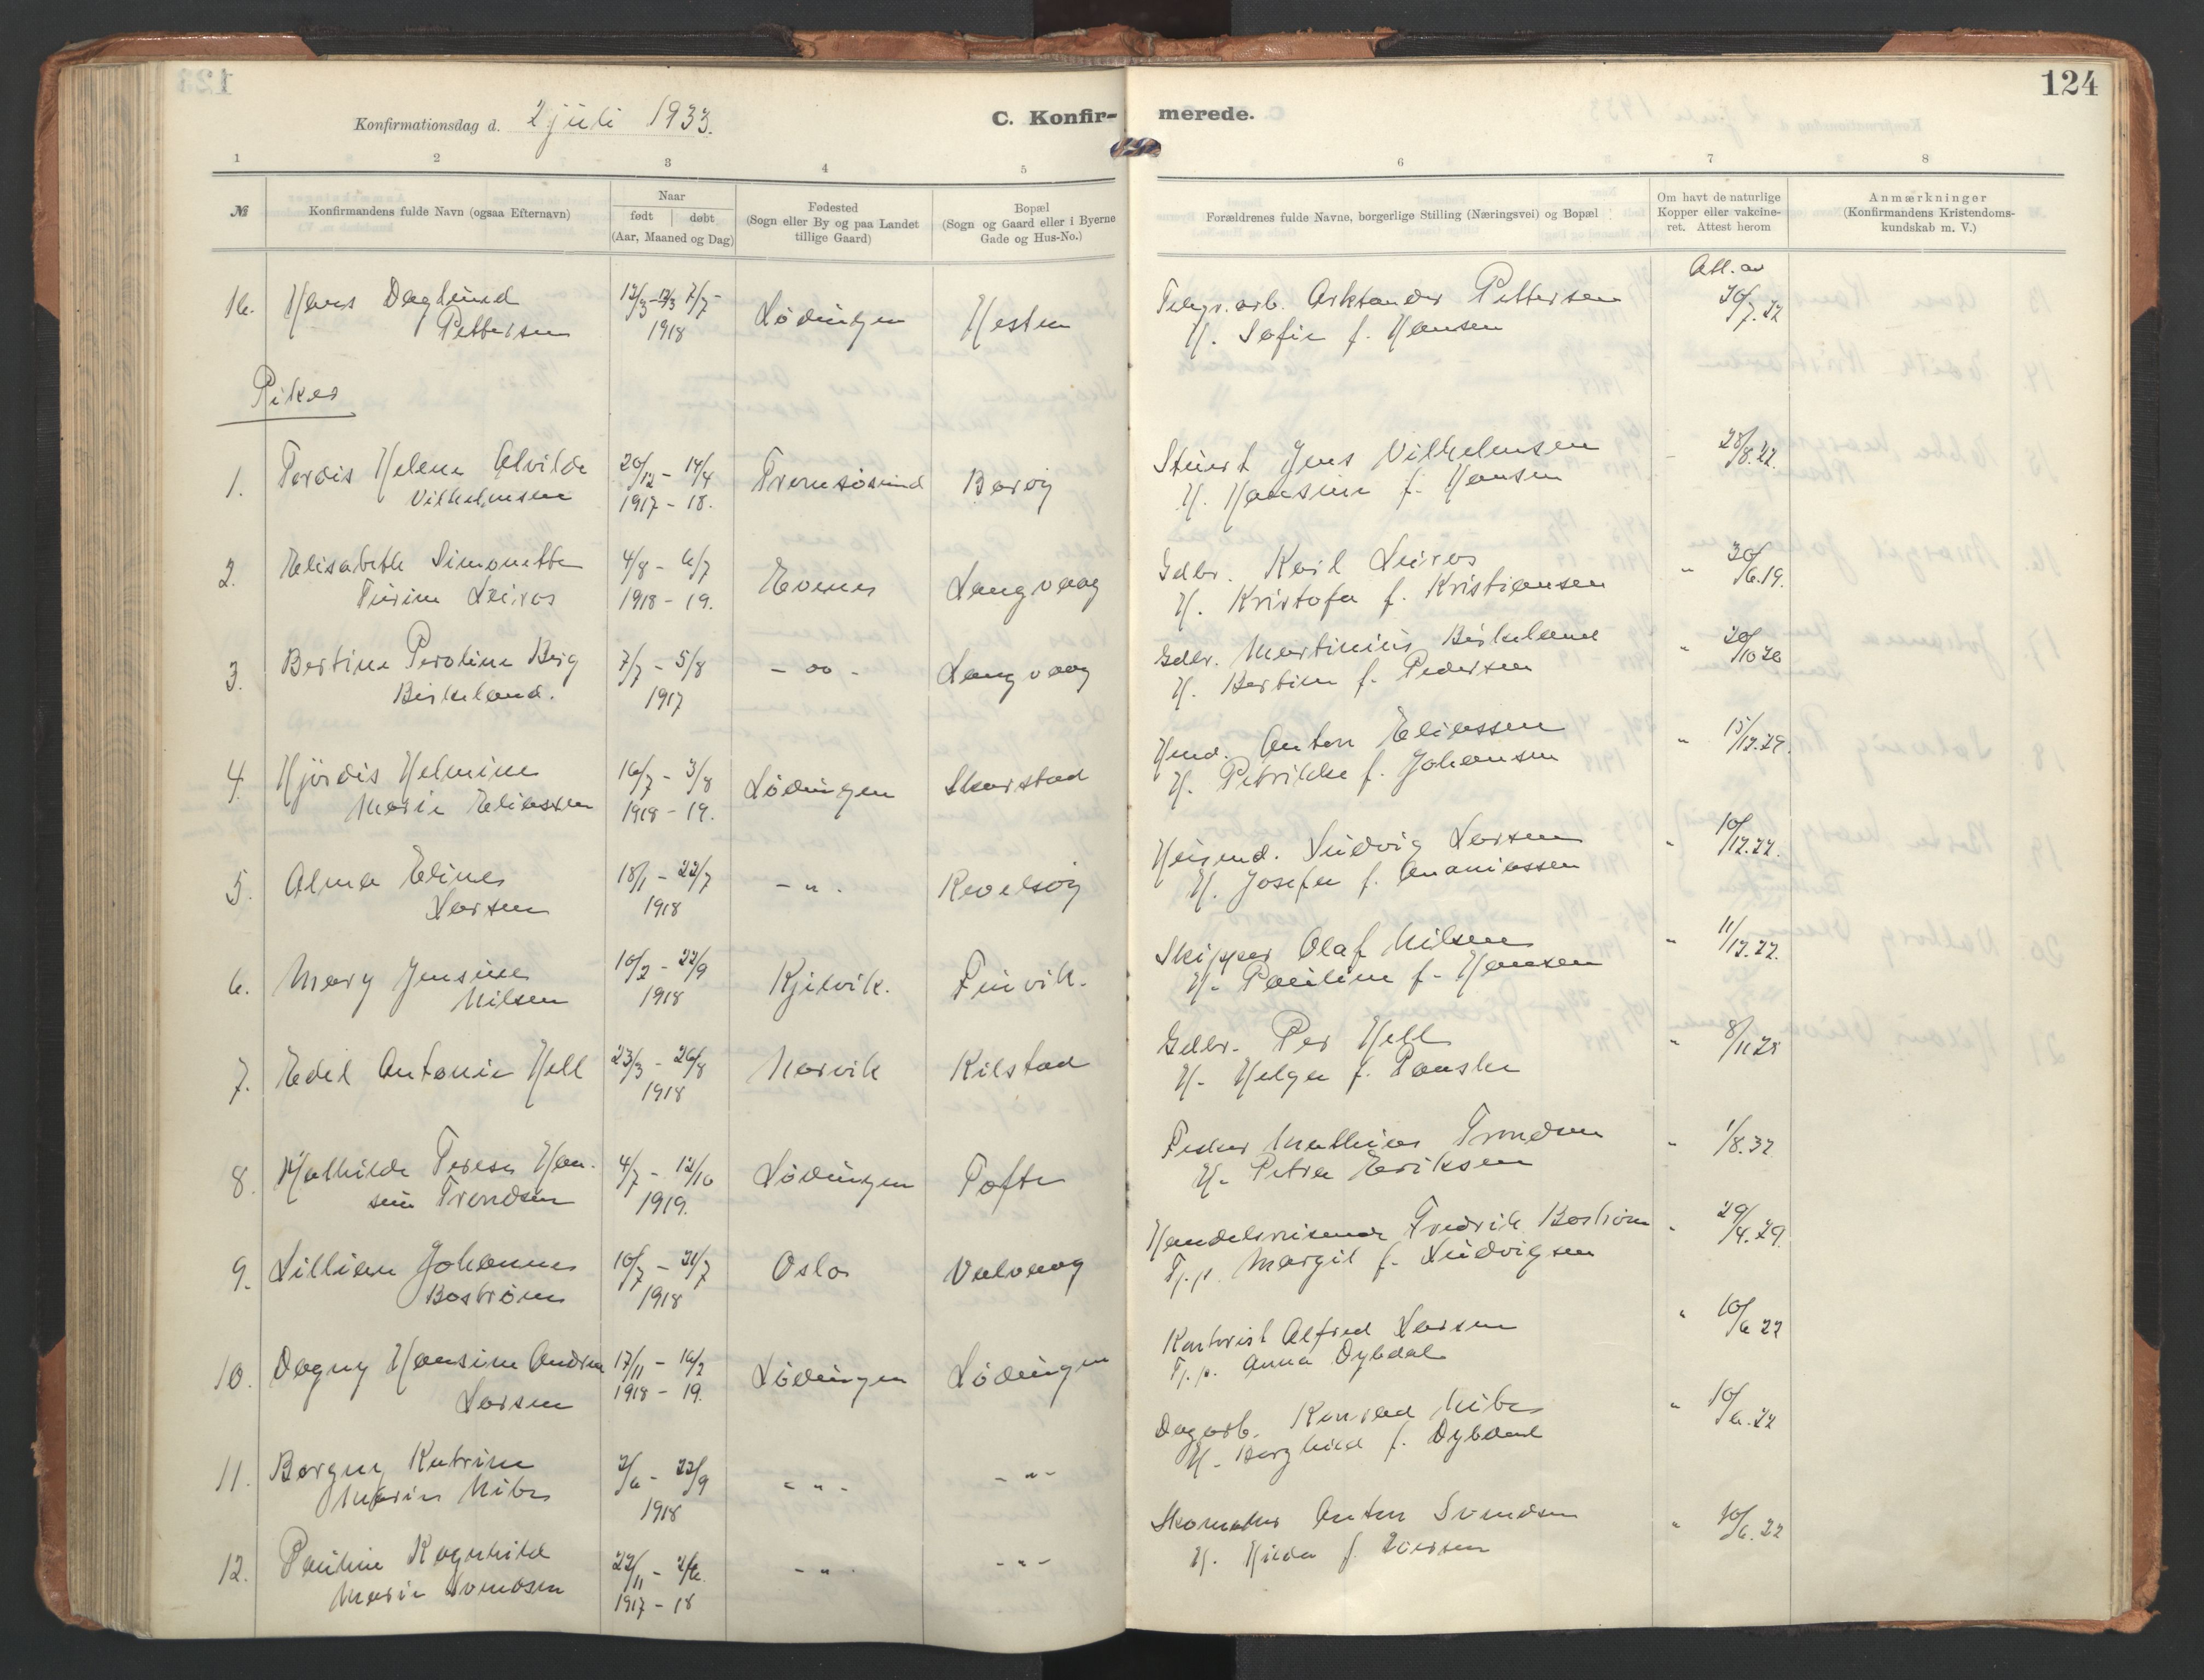 124
Konfirmationsdag d. 2 juli 1933.
C. Konfir- merede.
1 2 3 4 5 6 7 8
№
Konfirmandens fulde Navn (ogsaa Efternavn)
Naar
født døbt
(Aar, Maaned og Dag)
Fødested
(Sogn eller By og paa Landet
tillige Gaard)
Bopæl
(Sogn og Gaard eller i Byerne
Gade og Hus-No.)
Forældrenes fulde Navne, borgerlige Stilling (Næringsvei) og Bopæl
Om havt de naturlige
Kopper eller vakcine-
ret. Attest herom
Anmærkninger
(Konfirmandens Kristendoms-
kundskab m. V.)
16. Hans Daglund
Pettersen
1918
Lødingen
Hesten
Telegr.arb. Arktander Pettersen
H. Sofie f. Hansen
Att. av
Piker
1. Tordis Helene Alvilde
Vilhelmsen
20/12 - 14/4
1917 - 18.
Tromsøsund
Barøy
Stuert Jens Vilhelmsen
H. Hansine f. Hansen
28/8.22.
2. Elisabeth Simonette
Turine Leiros
4/8 - 6/7
1918 - 19.
Evenes
Langvaag
Gdbr. Karl Leiros
H. Kristofa f. Kristiansen
" 30/6.19.
3. Bertine Peroline Berg
Birkeland.
7/7 - 5/8
1917
- " -
Langvaag
Gdbr. Martinius Birkeland
H. Bertine f. Pedersen
"
4. Hjördis Helmine
Marie Eliassen
16/7 - 3/8
1918 - 19.
Lødingen
Skarstad
Hmd. Anton Eliassen
H. Petrikke f. Johansen
" 15/12.29.
5. Alma Elines
Larsen
18/1 - 22/7
1918
- " -
Revelsøy
Heimd. Ludvig Larsen
H. Josefa f. Ananiassen
" 10/12.22.
6. Mary Jensine
Nilsen
10/2 - 22/9
1918
Kjelvik.
Finvik.
Skipper Olaf Nilsen
H. Pauline f. Hansen
" 11/12.22.
7. Edel Antonie Hell
23/3 - 26/8
1918
Narvik
Kilstad
Gdbr. Per Hell
H. Helga f. Ponska
" 8/11 28
8. Mathilde Terese Han-
sine Trondsen
4/7 - 12/10
1919.
Lødingen
Tofte
Fisker Mathias Trondsen
H. Petra Eriksen
" 1/8.32
9. Lillian Johanne
Bostrøm
10/7 - 21/7
1918
Oslo
Valvaag
Handelsreisende Fredrik Bostrøm
Tj.p. Margit f. Ludvigsen
" 29/4.29.
10. Dagny Hansine Andrea
Larsen
17/11 - 16/2
1918 - 19.
Lødingen
Lødingen
Kontorist Alfred Larsen
Tj.p. Anna Dybdal
" 10/6 22
11. Borgny Katrine
Marie Nibe
2/6 - 22/9
1918
- " -
- " -
Dagarb. Konrad Nibe
H. Borghild f. Dybdal
" 10/6.22
12. Pauline Ragnhild
Marie Svendsen
22/11 - 2/6.
1917 - 18
- " -
- " -
Skomaker Anton Svendsen
H. Hilda f. Larsen
" 10/6.22